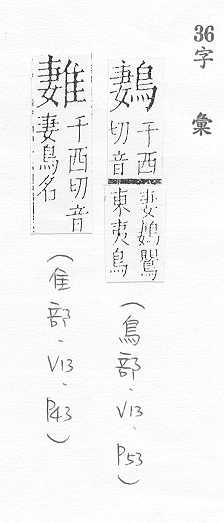 36字彙
鶈
千西
切音
妻鶈
東夷鳥
(鳥部、V13、P53)
千西切音
妻鳥名
(隹部、V13、P43)